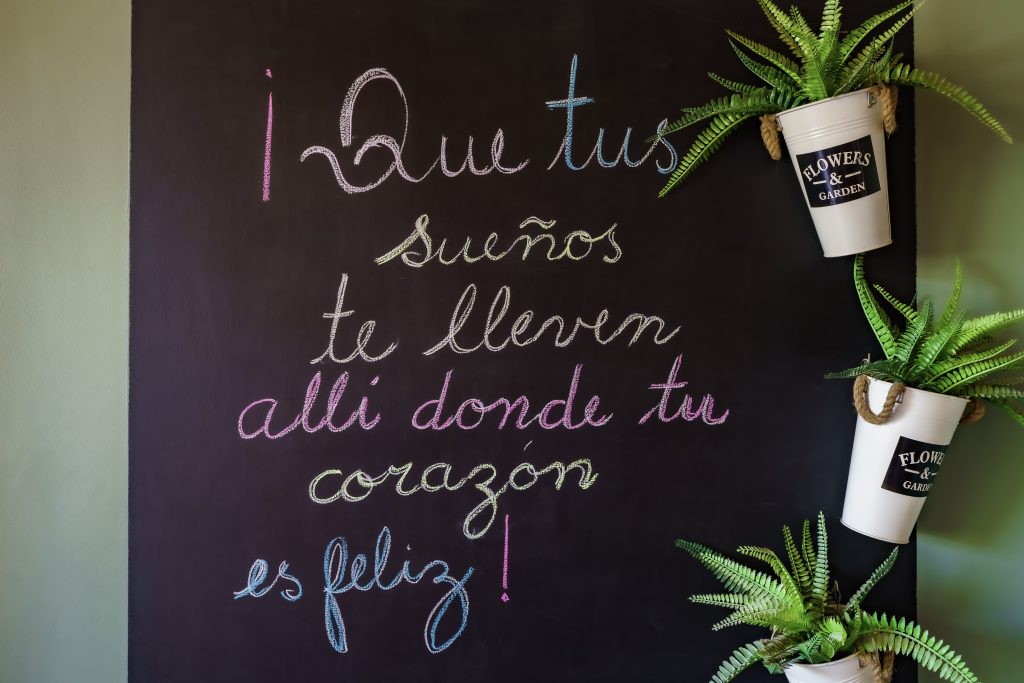 ¡ Que tus
sueños
te lleven
alli donde tu
corazón
es feliz!
FLOWERS
&
GARDEN
FLOWERS
&
GARDEN